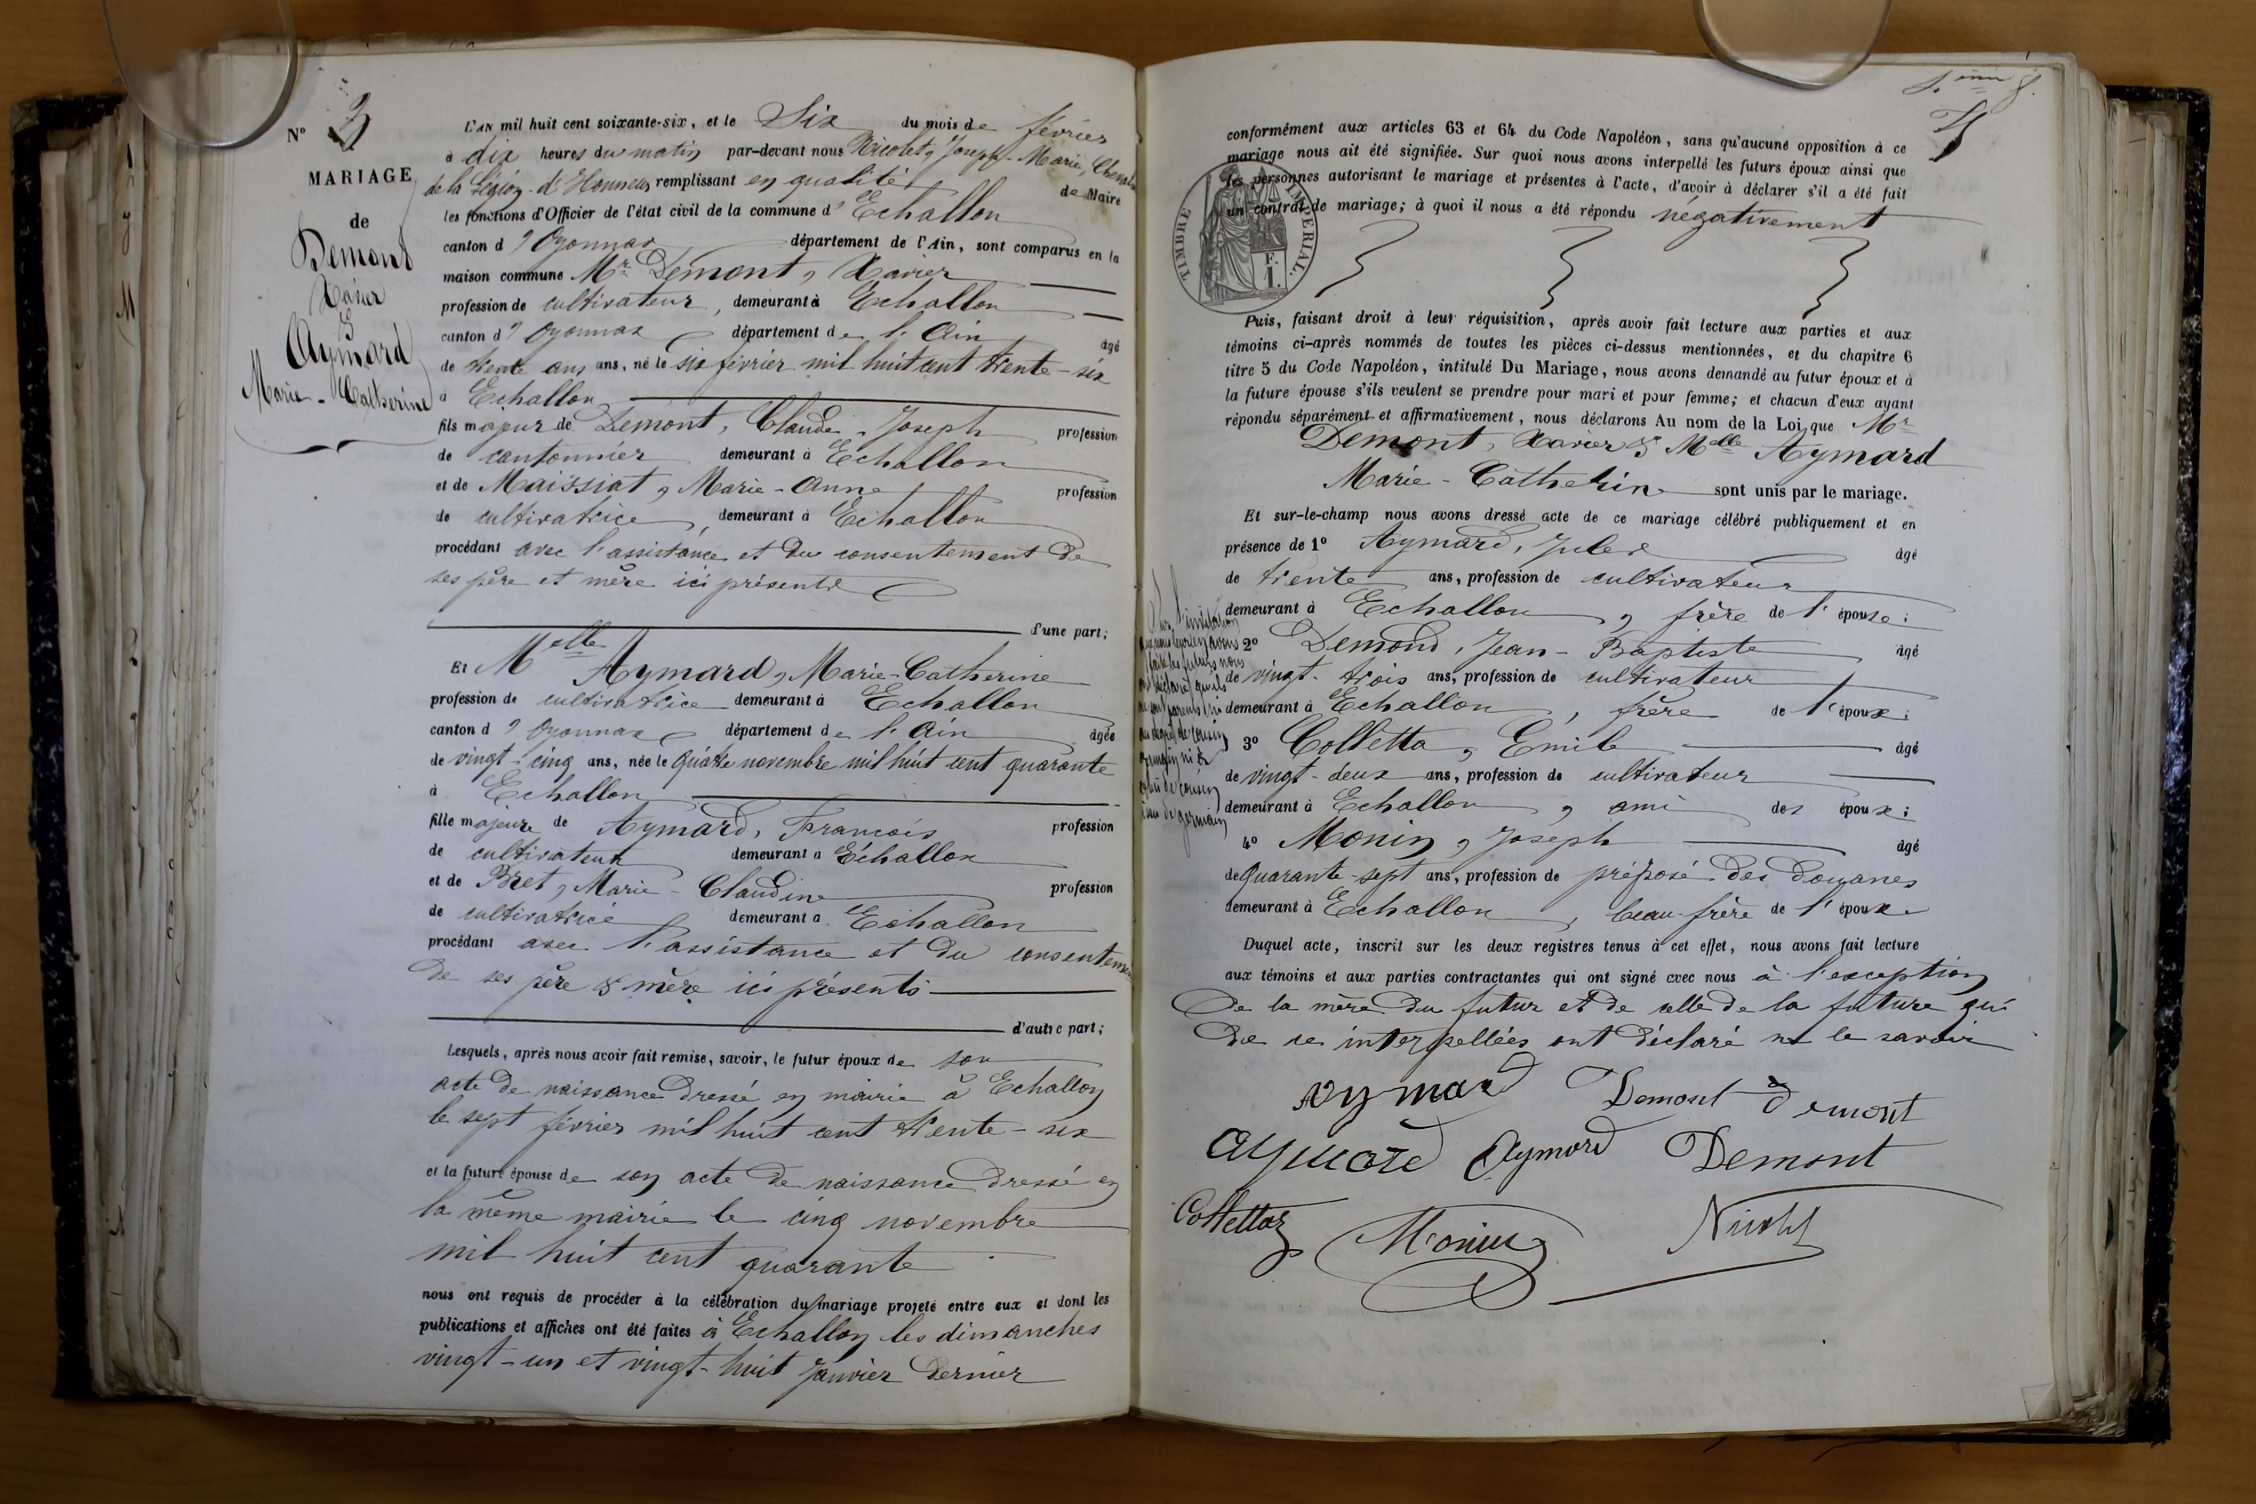 N° 3
MARIAGE
de
Demont
Xavier
&
Aymard
Marie-Catherine
L'AN mil huit cent soixante-six, et le Six du mois de février
à dix heures du matin par-devant nous Nicolet, Joseph-Marie, Chevalier
de la Légion d'Honneur, remplissant en qualité de Maire
les fonctions d'Officier de l'état civil de la commune d'Echallon
canton d'Oyonnax département de l'Ain, sont comparus en la
maison commune Mr Demont, Xavier
profession de cultivateur, demeurant à Echallon
canton d'Oyonnax département de l'Ain âgé
de trente ans ans, né le six février mil huit cent trente-six
à Echallon
fils majeur de Demont, Claude-Joseph profession
de cantonnier demeurant à Echallon
et de Maissiat, Marie-Anne profession
de cultivatrice, demeurant à Echallon
procédant avec l'assistance et du consentement de
ses père et mère ici présents
d'une part;
Et Melle Aymard, Marie-Catherine
profession de cultivatrice demeurant à Echallon
canton d'Oyonnax département de l'Ain âgée
de vingt-cinq ans, née le quatre novembre mil huit cent quarante
à Echallon
fille majeure de Aymard, François profession
de cultivateur demeurant à Échallon
et de Bret, Marie-Claudine profession
de cultivatrice demeurant à Echallon
procédant avec l'assistance et du consentement
de ses père & mère ici présents
d'autre part;
Lesquels, après nous avoir fait remise, savoir, le futur époux de son
acte de naissance dressé en mairie à Echallon
le sept février mil huit cent trente-six
et la future épouse de son acte de naissance dressé en
la même mairie le cinq novembre
mil huit cent quarante
nous ont requis de procéder à la célébration du mariage projeté entre eux et dont les
publications et affiches ont été faites à Echallon les dimanches
vingt-un et vingt-huit Janvier dernier
conformément aux articles 63 et 64 du Code Napoléon, sans qu'aucune opposition à ce
mariage nous ait été signifiée. Sur quoi nous avons interpellé les futurs époux ainsi que
les personnes autorisant le mariage et présentes à l'acte, d'avoir à déclarer s'il a été fait
un contrat de mariage; à quoi il nous a été répondu négativement
TIMBRE IMPÉRIAL.
F.
1.
Puis, faisant droit à leur réquisition, après avoir fait lecture aux parties et aux
témoins ci-après nommés de toutes les pièces ci-dessus mentionnées, et du chapitre 6
titre 5 du Code Napoléon, intitulé Du Mariage, nous avons demandé au futur époux et à
la future épouse s'ils veulent se prendre pour mari et pour femme; et chacun d'eux ayant
répondu séparément et affirmativement, nous déclarons Au nom de la Loi, que Mr
Demont, Xavier & Melle Aymard
Marie-Catherine sont unis par le mariage.
Et sur-le-champ nous avons dressé acte de ce mariage célébré publiquement et en
présence de 1° Aymard, Jules âgé
de trente ans, profession de cultivateur
demeurant à Echallon, frère de l'épouse;
2° Demond, Jean-Baptiste âgé
de vingt-trois ans, profession de cultivateur
demeurant à Echallon, frère de l'époux;
3° Colletta, Emile âgé
de vingt-deux ans, profession de cultivateur
demeurant à Echallon, ami des époux;
4° Monin, Joseph âgé
de quarante-sept ans, profession de préposé des douanes
demeurant à Echallon, beau-frère de l'époux.
Duquel acte, inscrit sur les deux registres tenus à cet effet, nous avons fait lecture
aux témoins et aux parties contractantes qui ont signé avec nous à l'exception
de la mère du futur et de celle de la future qui
de ce interpellées ont déclaré ne le savoir
Aymard Demont demont
aymard Aymard Demont
Collettaz Monin Nicolet